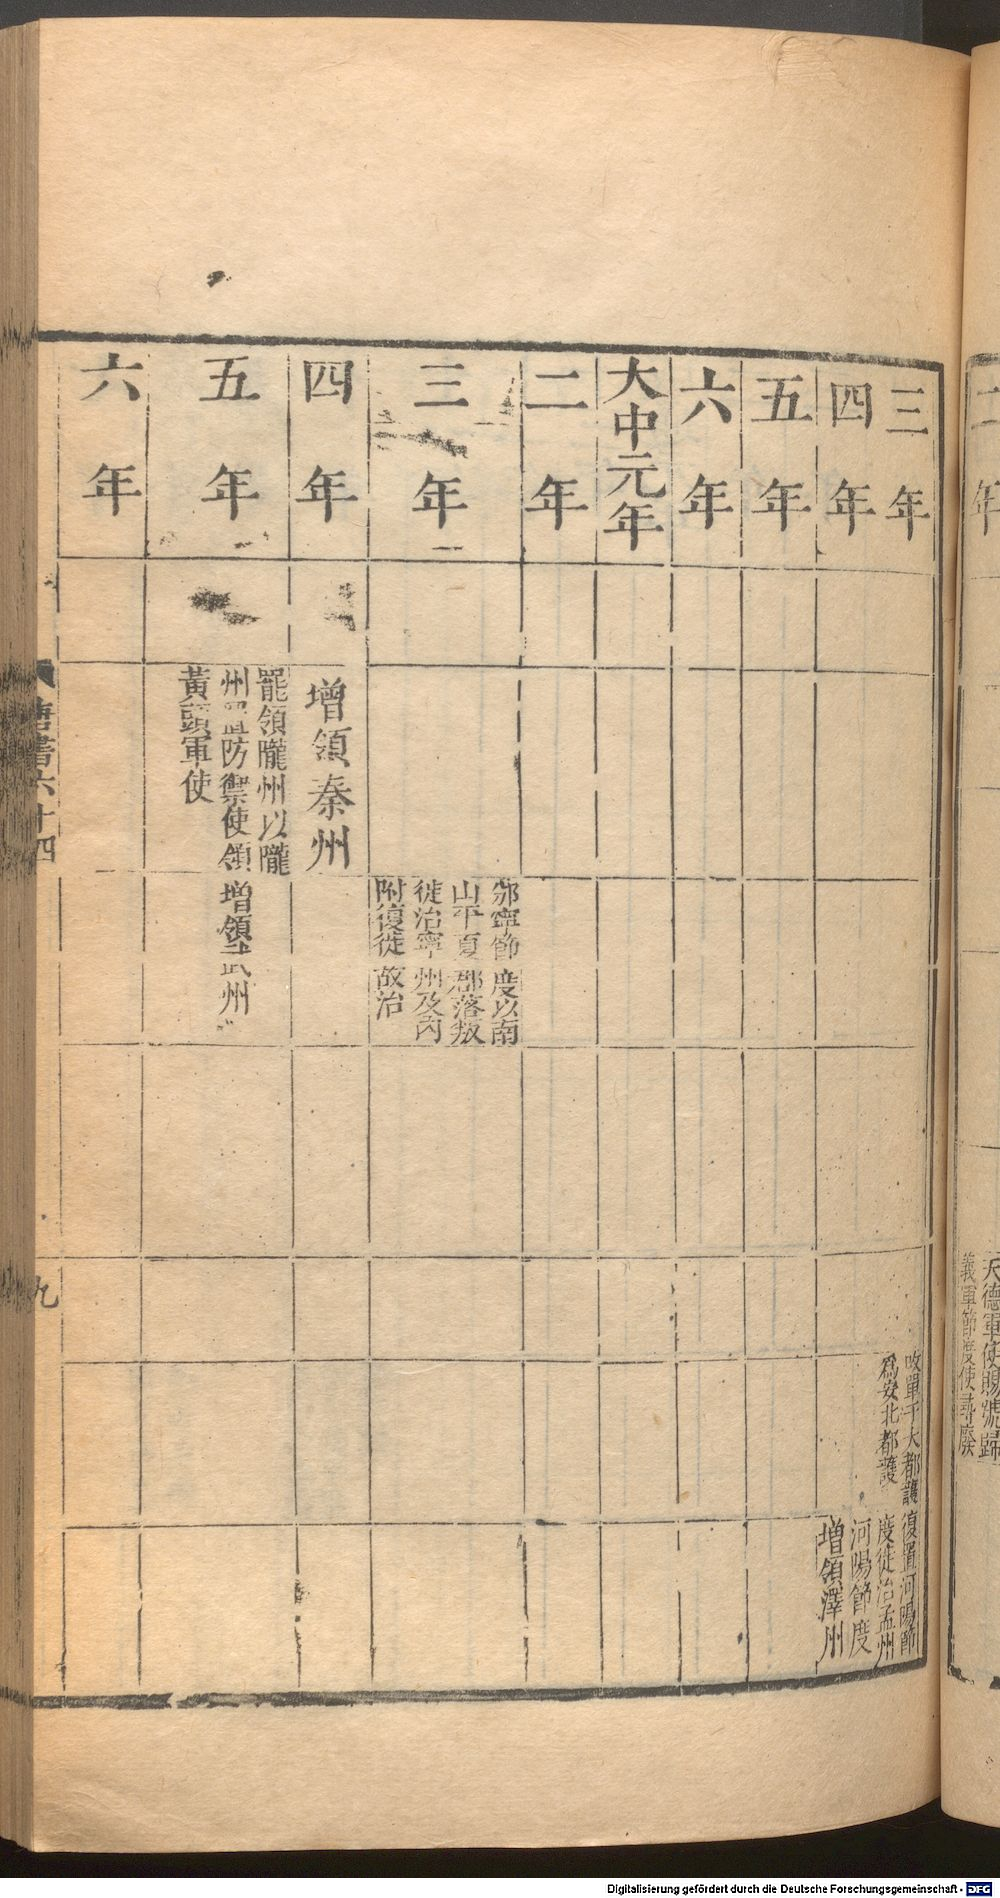 三年
四年
五年
六年
大中元年
二年
三年
四年
五年
六年
增領秦州
罷領隴州以隴
州置防禦使領
黃頭軍使
邠寧節度以南
山平夏部落叛
徙治寧州及內
附復徙故治
增領武州
改單于大都護
爲安北都護
復置河陽節
度徙治孟州
河陽節度
增領澤州
唐書六十四
九
二年
天德軍使賜號歸
義軍節度使尋廢
Digitalisierung gefördert durch die Deutsche Forschungsgemeinschaft - DFG